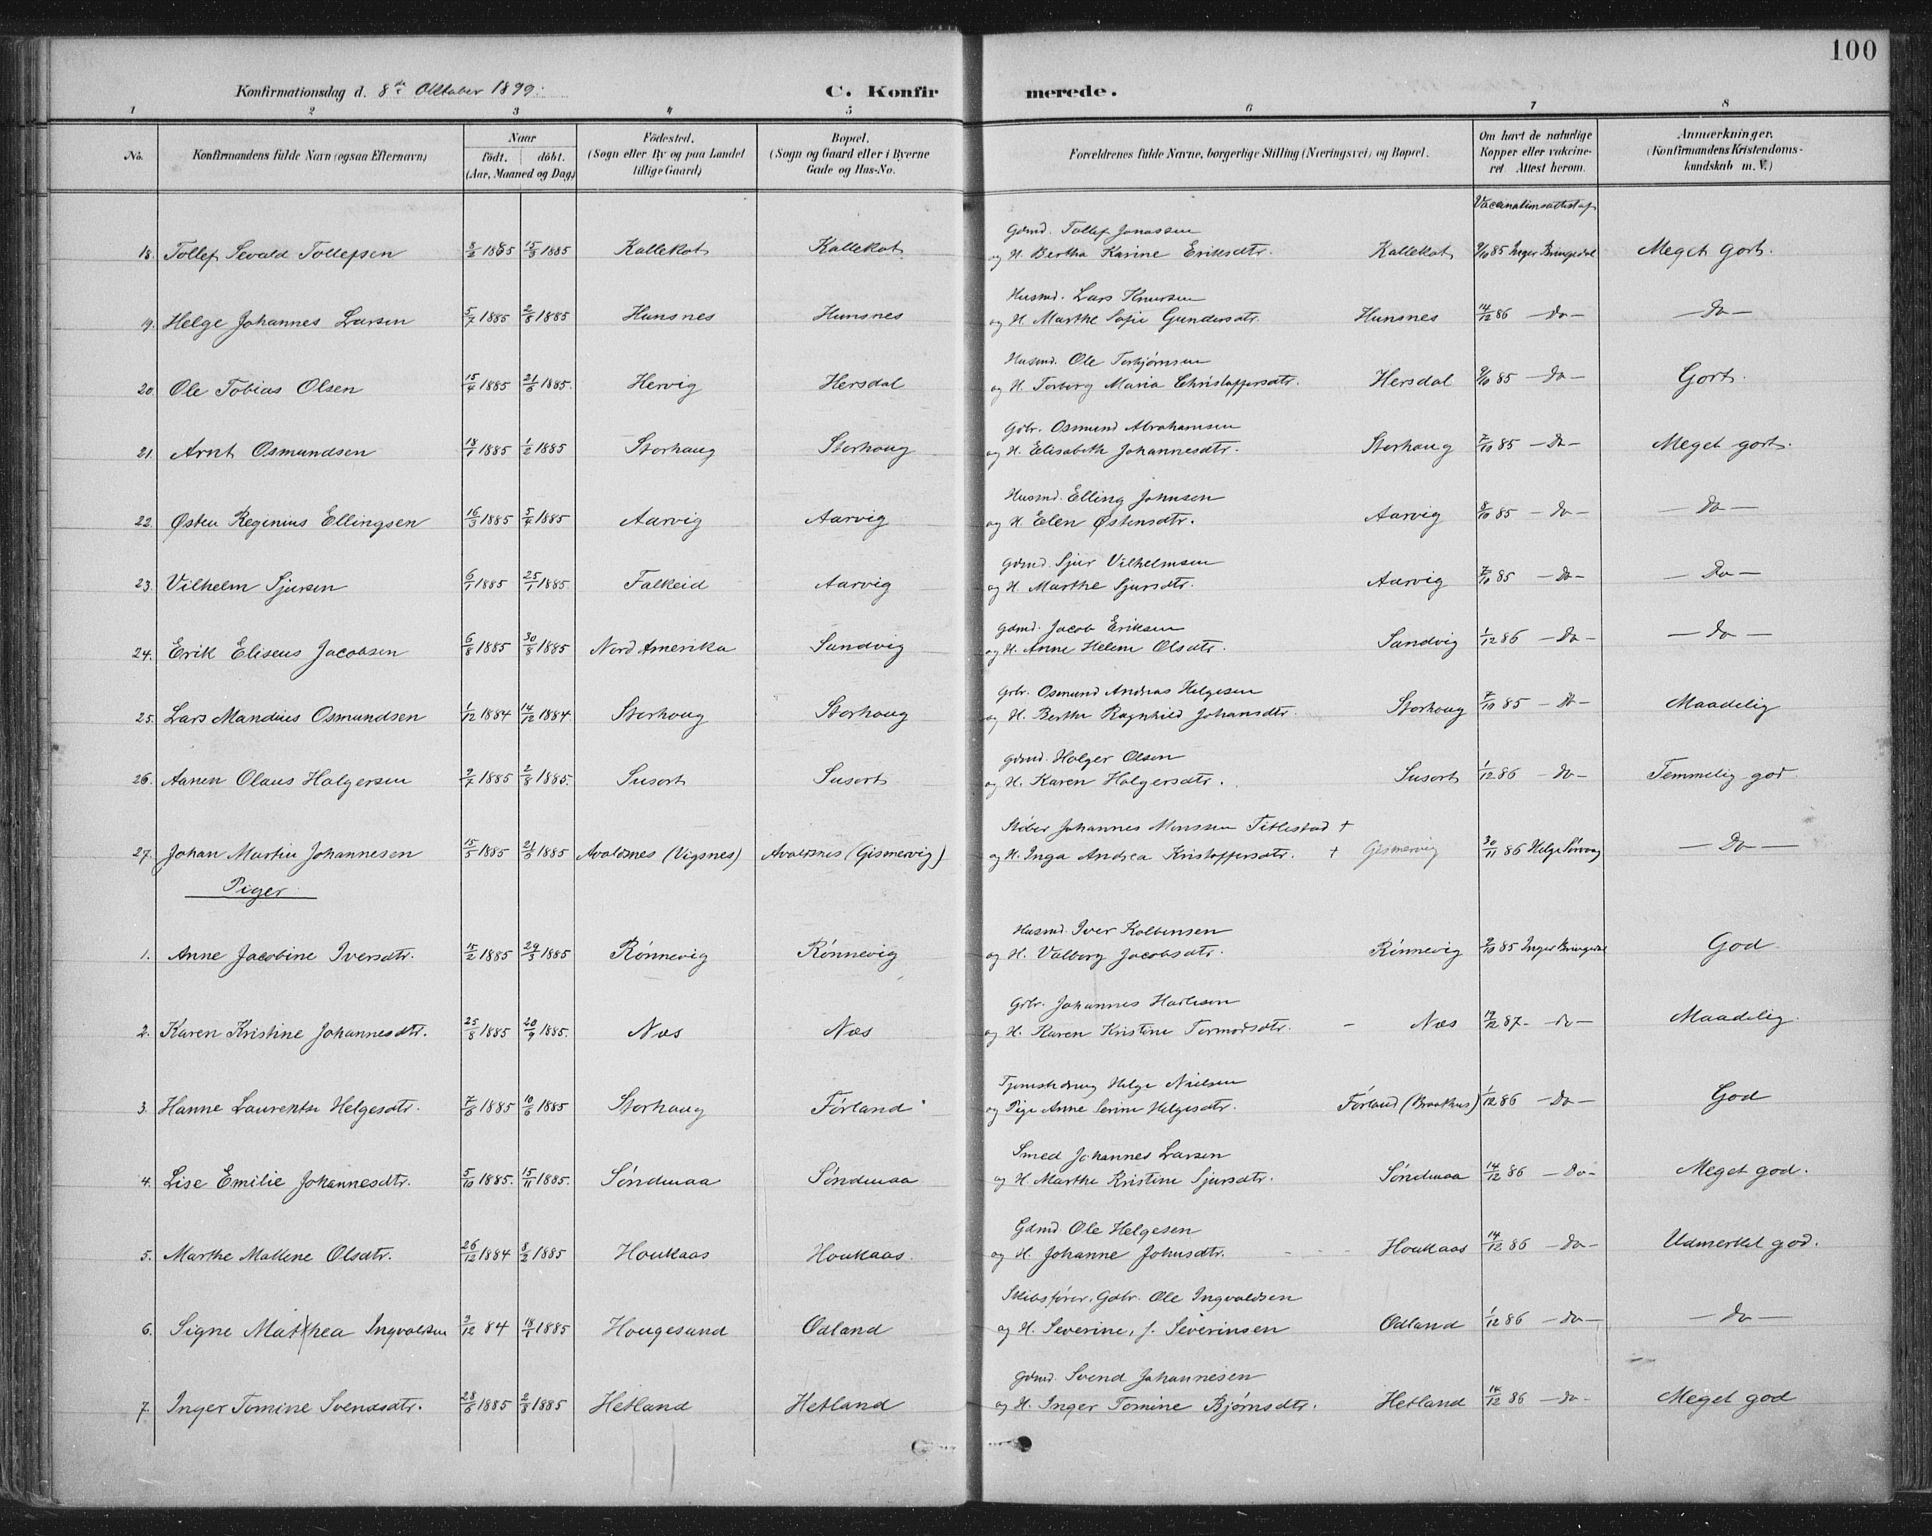 100
Konfirmationsdag d. 8de Oktober 1899.
C. Konfirmerede.
1 2 3 4 5 6 7 8
No. Konfirmandens fulde Navn (ogsaa Efternavn) Naar født. døbt. (Aar, Maaned og Dag) Fødested. (Sogn eller By og paa Landet tillige Gaard) Bopæl. (Sogn og Gaard eller i Byerne Gade og Hus-No. Forældrenes fulde Navne, borgerlige Stilling (Næringsvei) og Bopæl. Om havt de naturlige Kopper eller vakcineret Attest herom. Anmærkninger. (Konfirmandens Kristendomskundskab m. V.)
Vaccinationsattest af
Gdmd. Tollef Jonassen
18. Tollef Sevald Tollefsen 8/2 1885 15/3 1885 Kallekot Kallekot og H. Bertha Karine Eriksdtr. Kallekot 9/10 85 Inger Bringedal Meget godt.
Husmd. Lars Knutsen
19. Helge Johannes Larsen 5/7 1885 2/8 1885 Hunsnes Hunsnes og H. Marthe Sofie Gundersdtr. Hunsnes 14/12 86 — Do — — Do —
Husmd. Ole Torbjørnsen
20. Ole Tobias Olsen 15/4 1885 21/6 1885. Hervig Hersdal og H. Torborg Maria Christoffersdtr. Hersdal 9/10 85 — Do — Godt.
Gdbr. Osmund Abrahamsen
21. Arnt Osmundsen 18/1 1885 1/2 1885 Storhaug Storhaug og H. Elisabeth Johannesdtr. Storhaug 7/10 85 — Do — Meget godt.
Husmd. Elling Johnsen
22. Østen Reginius Ellingsen 16/3 1885 5/4 1885 Aarvig Aarvig og H. Elen Østensdtr. Aarvig 8/10 85 — Do — — Do —
Gdmd. Sjur Vilhelmsen
23. Vilhelm Sjursen 6/1 1885 25/1 1885. Falkeid Aarvig og H. Marthe Sjursdtr. Aarvig 7/10 85 — Do — — Do —
Gdmd. Jacob Eriksen
24. Erik Eliseus Jacobsen 6/8 1885 30/8 1885 Nord Amerika Sandvig og H. Anne Helene Olsdtr. Sandvig 1/12 86 — Do — — Do —
Gdbr. Osmund Andreas Helgesen
25. Lars Mandius Osmundsen 1/12 1884 14/12 1884. Storhaug Storhaug og H. Berthe Ragnhild Johansdtr. Storhaug 7/10 85 — Do — Maadelig
Gdmd. Holger Olsen
26. Aanen Olaus Holgersen 9/7 1885 2/8 1885. Susort Susort og H. Karen Holgersdtr. Susort 1/12 86 — Do — Temmelig god.
Støber Johannes Monssen Titlestad +
27. Johan Martin Johannesen 15/5 1885 21/5 1885 Avaldsnes (Vigsnes) Avaldsnes (Gismervig) og H. Inga Andrea Kristoffersdtr. + Gismervig 30/11 86 Helge Sørvaag — Do —
Piger:
Husmd. Iver Kolbensen
1. Anne Jacobine Iversdtr. 15/2 1885 29/3 1885 Rønnevig Rønnevig og H. Valborg Jacobsdtr. Rønnevig 9/10 85 Inger Bringedal God
Gdbr. Johannes
2. Karen Kristine Johannesdtr. 25/8 1885 20/9 1885. Næs Næs og H. Karen Kristine Tormodsdtr. Næs 14/12 87 — Do — Maadelig.
Tjenestedreng Helge Nielsen
3. Hanne Laurentse Helgesdtr. 7/6 1885 10/6 1885 Storhaug Førland og Pige Anne Serine Helgesdtr. Førland (Braathus) 1/12 86 — Do — God
Smed Johannes Larsen
4. Lise Emilie Johannesdtr. 5/10 1885. 15/11 1885. Søndenaa Søndenaa og H. Marthe Kristine Sjursdtr. Søndenaa 14/12 86 — Do — Meget god.
Gdmd. Ole Helgesen
5. Marthe Mallene Olsdtr. 26/12 1884 8/2 1885 Houkaas Houkaas. og H. Johanne Johnsdtr. Houkaas 14/12 86 — Do — Udmerket god.
Skibsfører, Gdbr. Ole Ingvaldsen
6. Signe Mathea Ingvaldsen 3/12 84 18/1 1885 Hougesund Odland og H. Severine, f. Severinsen Odland 1/12 86 — Do — — Do —
Gdmd. Svend Johannesen
7. Inger Tomine Svendsdtr. 28/6 1885 2/8 1885 Hetland Hetland og H. Inger Tomine Bjørnsdtr. Hetland 14/12 86 — Do — Meget god